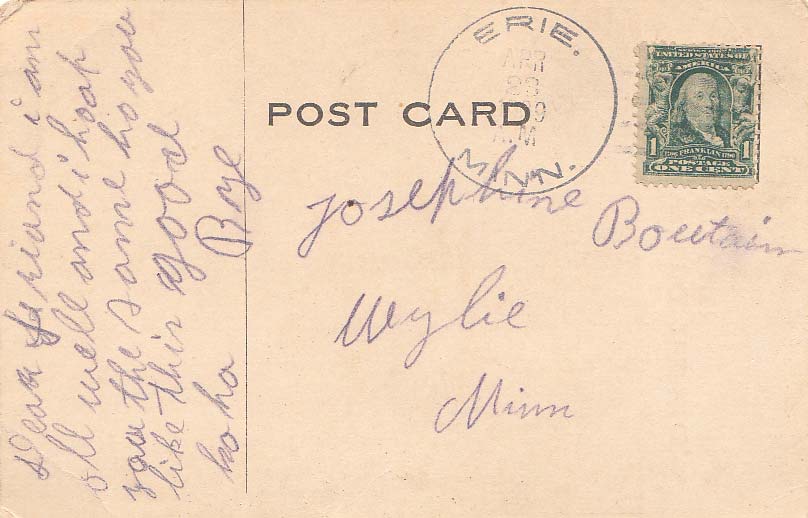 Dear friend i am
all well and i hoap
you the same ho you
like this good
ho ho Bye
POST CARD
ERIE.
APR
23
9
A.M
MINN.
UNITED STATES OF
AMERICA
1 FRANKLIN 1790 1
POSTAGE
ONE CENT
Josephine
Boutain
Wylie
Minn